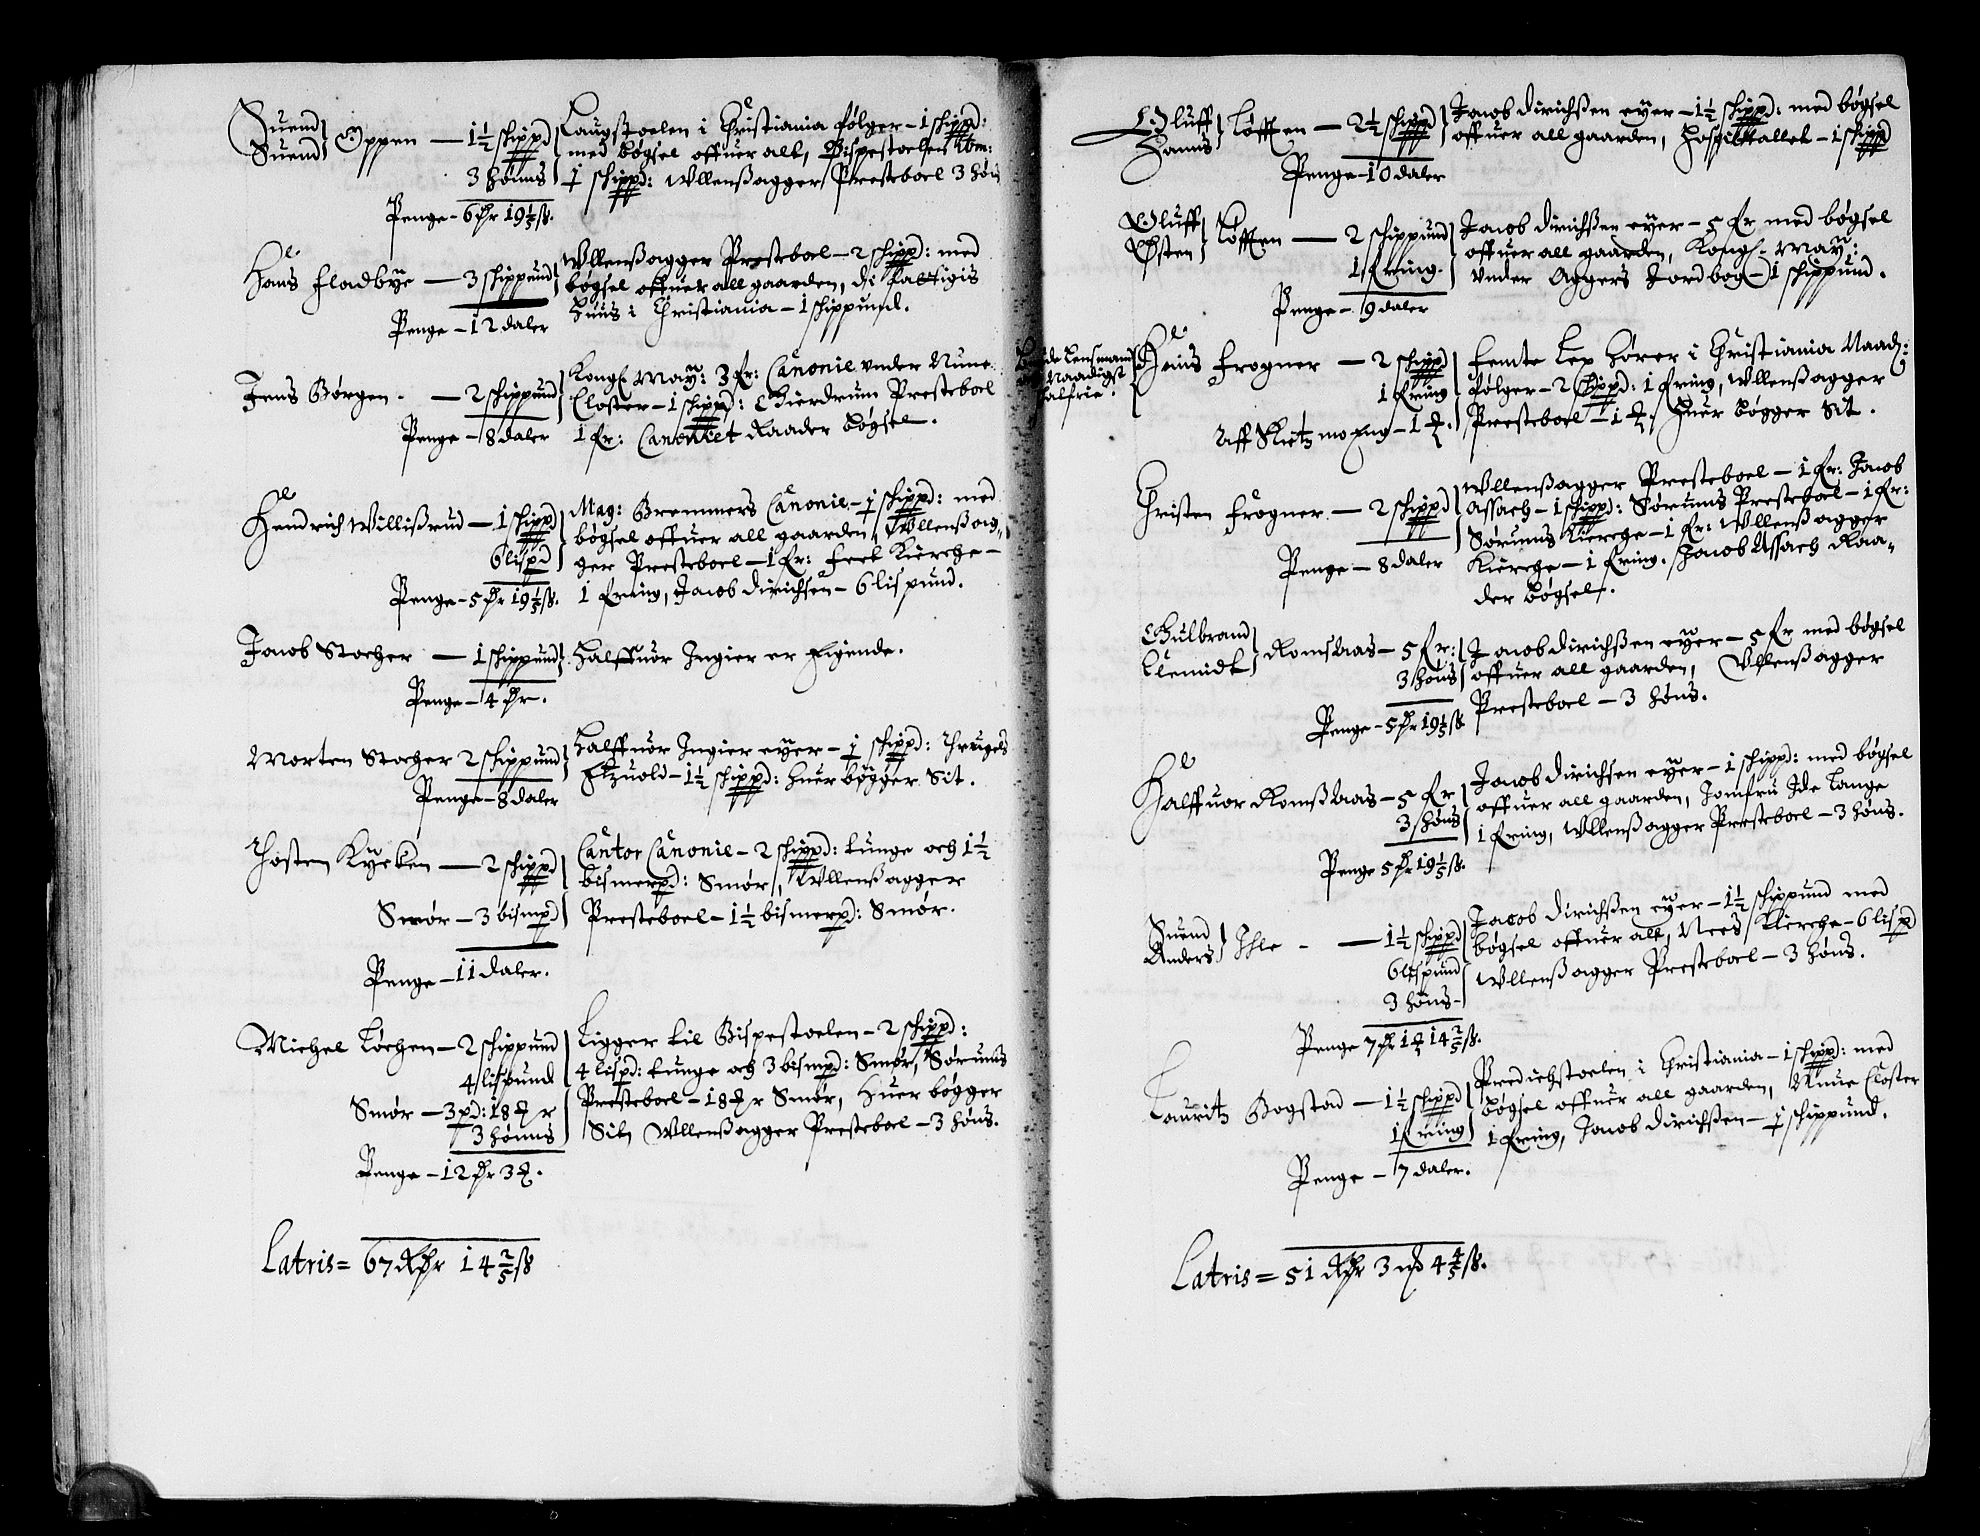 Suend
Suend } Oppen — 1½ schippd
3 hönns
Penge – 6 dlr 19⅕ ß.
Laugstoelen i Christiania følger – 1 schippd:
med bøgsel offuer alt, Bispestoelen ibm:
½ schippd: Wllenßagger Presteboel 3 høns
Hans Fladbye — 3 schippund
Penge – 12 daler
Wllenßagger Presteboel – 2 schippd: med
bøgsel offuer all gaarden, di Fattigis
Huus i Christiania – 1 schippund.
Jens Børgen – 2 schippund
Penge – 8 daler
Kongl May: 3 fr: Canonie vnder Nunne
Closter – 1 schippd: Gierdrum Presteboel
1 fr: Canoniet Raader bøgsel.
Hendrich Willißrud — 1 schippd
6 lispd
Penge – 5 dlr 19⅕ ß.
Mag: Bremmers Canonie – ½ schippd: med
bøgsel offuer all gaarden, Wllenßag-
ger Presteboel – 1 fr: Feet Kierche –
1 fring, Jacob Dirichsen – 6 lispund.
Jacob Stocher — 1 schippund
Penge – 4 dlr.
Halffuor Ingier er Eigende.
Morten Stocher 2 schippund
Penge – 8 daler
Halffuor Ingier eyer – ½ schippd: Thrugels
Elzuold – 1½ schippd: huer bøgger Sit.
Thosten Kycken — 2 schippd
Smør – 3 bismpd
Penge – 11 daler.
Cantor Canonie – 2 schippd: tunge och 1½
bismerpd: Smør, Wllenßagger
Presteboel – 1½ bismerpd: Smør.
Michel Løchen – 2 schippund
4 lispund
Smør – 3 pd: 18 mr
3 hønns
Penge – 12 dlr 3 ort.
Ligger til Bispestoelen – 2 schippd:
4 lispd: tunge och 3 bismpd: Smør, Sørums
Presteboel – 18 mr Smør, huer bøgger
Sit, Wllenßagger Presteboel – 3 høns.
Latris = 67 Rdlr 14⅖ ß
Oluff
Hanns } Løffen — 2½ schippd
Penge – 10 daler
Jacob Dirichßen eyer – 1½ schippd: med bøgsel
offuer all gaarden, Hospittallet – 1 schippd
Oluff
Østen } Løffen — 2 schippund
1 fring.
Penge – 9 daler
Jacob Dirichßen eyer – 5 fr med bøgsel
offuer all gaarden, Kongl: May:
vnder Aggers Jordbog – 1 schippund.
Lensmand
Naadigst
Hans Frogner — 2 schippd
1 fring
Aff Kietz moeng – 1 ort.
Femte Lex Hører i Christiania Naad:
følger – 2 schippd: 1 fring, Wllenßagger
Presteboel – 1 ort, huer bøgger Sit.
Christen Frogner — 2 schippd
Penge – 8 daler
Wllenßagger Presteboel – 1 fr: Jacob
Assach – 1 schippd: Sørums Presteboel – 1 fr:
Sørums Kierche – 1 fr: Wllenßagger
Kierche – 1 fring. Jacob Assach Raa-
der bøgsel.
Gulbrand
Clemidt } Romsaas – 5 fr:
3 høns
Penge – 5 dlr 19⅕ ß
Jacob Dirichßen eyer – 5 fr med bøgsel
offuer all gaarden, Wllenßagger
Presteboel – 3 høns.
Halffuor Romßaas – 5 fr
3 høns
Penge 5 dlr 19⅕ ß.
Jacob Dirichsen eyer – 1 schippd: med bøgsel
offuer all gaarden, Jomfru Ide Lange
1 fring, Wllenßagger Presteboel – 3 høns.
Suend
Anders } Ihle – — 1½ schippd
6 lispund
3 høns –
Penge 7 dlr 1 ort 14⅖ ß.
Jacob Dirichßen eyer – 1½ schippund med
bøgsel offuer alt, Nees Kierche – 6 lispd
Wllenßagger Presteboel – 3 høns.
Lauritz Bogstad — 1½ schippd
1 fring
Penge – 7 daler.
Predichstoelen i Christiania – 1 schippd: med
bøgsel offuer all gaarden, Nnue Closter
1 fring, Jacob Dirichßen – ½ schippund.
Latris = 51 Rdlr 3 ort 4⅘ ß.